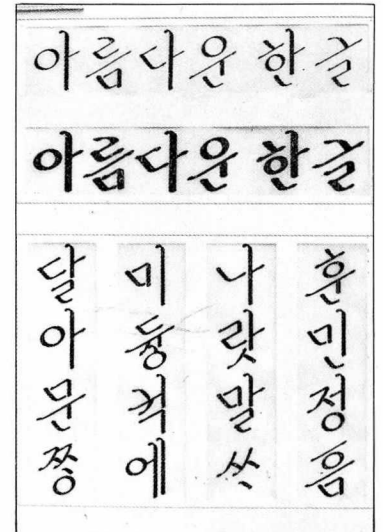 아름다운 한글
아름다운 한글
훈민정음
나랏말ᄊᆞ
미듕귁에
달아문ᄍᆞᆼ